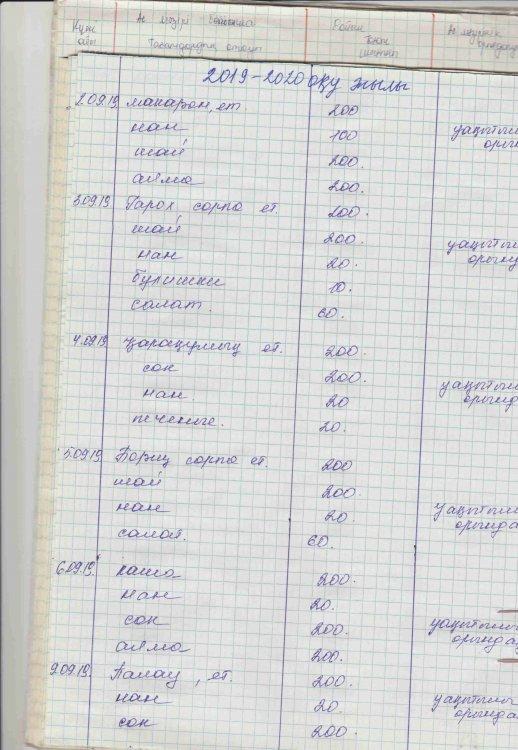 Күні Ас мәзірі бойынша
айы Тағамдардың атауы
2019-2020 оқу жылы
2.09.19 макарон, ет 200
нан 100 уақытылы
шай 200.
алма 200.
3.09.19 Горох сорпа ет. 200.
шай 200. уақытылы
нан 20.
буришки 10.
салат. 60.
4.09.19 қарақұмық ет. 200
сок 200. уақытылы
нан. 20
печенье. 20.
5.09.19 Борщ сорпа ет. 200
шай 200.
нан 20. уақытылы
салат. 60.
6.09.19. каша 200.
нан 20.
сок 200. уақытылы
алма 200.
9.09.19. Палау, ет. 200.
нан 20. уақытылы
сок 200.